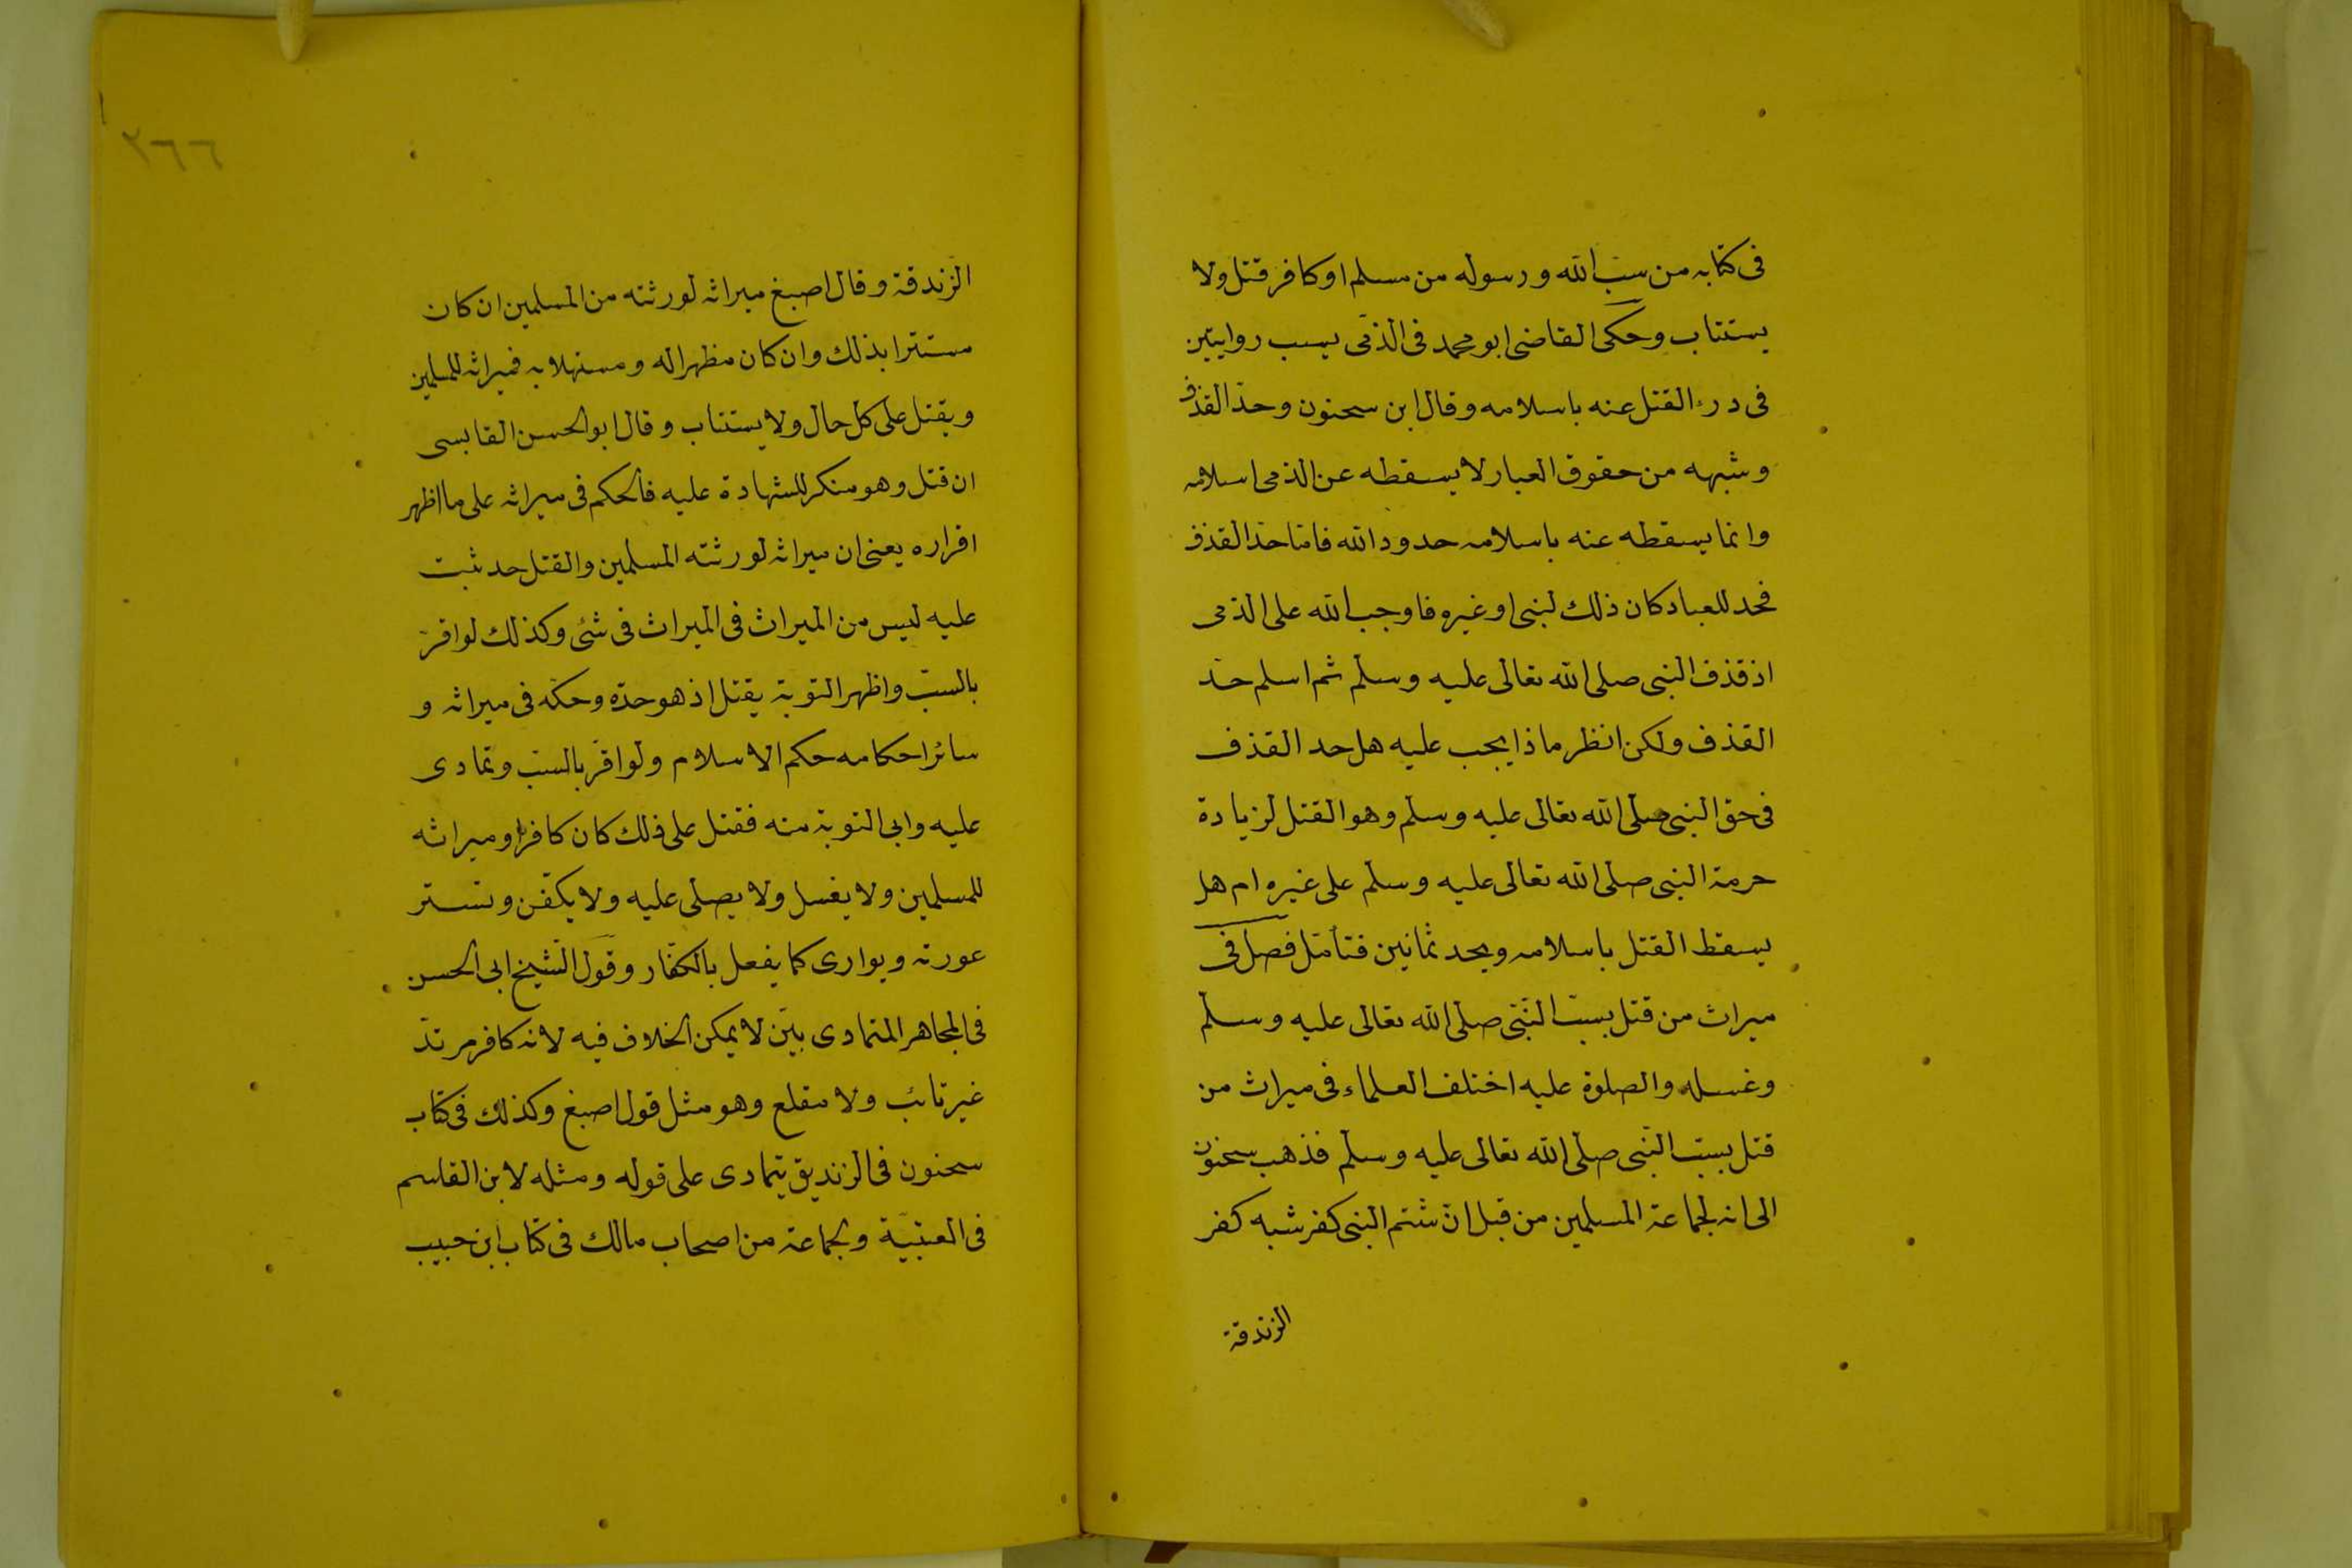 فى كتابه من سبّ الله ورسوله من مسلم او كافر قتل ولا
يستتاب وحكى القاضى ابو محمد فى الذمّى يسب روايتين
فى درء القتل عنه باسلامه وقال ابن سحنون وحدّ القذف
وشبهه من حقوق العبار لا يسقطه عن الذمى اسلامه
وانما يسقطه عنه باسلامه حدود الله فامّا حدّ القذف
فحد للعباد كان ذلك لنبى او غيره فاوجب الله على الذمى
اذ قذف النبى صلى الله تعالى عليه وسلم ثم اسلم حدّ
القذف ولكن انظر ماذا يجب عليه هل حد القذف
فى حق النبى صلى الله تعالى عليه وسلم وهو القتل لزيادة
حرمة النبى صلى الله تعالى عليه وسلم على غيره ام هل
يسقط القتل باسلامه ويحد ثمانين فتأمّل فصل فى
ميراث من قتل بسبّ النّبى صلى الله تعالى عليه وسلم
وغسله والصلوة عليه اختلف العلماء فى ميراث من
قتل بسبّ النّبى صلى الله تعالى عليه وسلم فذهب سحنون
الى انه لجماعة المسلمين من قبل انّ شتم النبى كفر شبه كفر
الزندقة
٢٦٦
الزندقة وقال اصبغ ميراثه لورثته من المسلمين ان كان
مستترا بذلك وان كان مظهرا له ومستهلا به فميراثه للمسلمين
ويقتل على كل حال ولا يستتاب وقال ابو الحسن القابسى
ان قتل وهو منكر للشهادة عليه فالحكم فى ميراثه على ما اظهر
اقراره يعنى ان ميراثه لورثته المسلمين والقتل حد ثبت
عليه ليس من الميراث فى الميراث فى شئ وكذلك لو اقرّ
بالسبّ واظهر التوبة يقتل اذ هو حدّه وحكمه فى ميراثه و
سائر احكامه حكم الاسلام ولو اقرّ بالسبّ وتمادى
عليه وابى التوبة منه فقتل على ذلك كان كافرا وميراثه
للمسلمين ولا يغسل ولا يصلى عليه ولا يكفّن وتستر
عورته ويوارى كما يفعل بالكفّار وقول الشيخ ابى الحسن
فى المجاهر المتمادى بيّن لا يمكن الخلاف فيه لانه كافر مرتدّ
غير تائب ولا مقلع وهو مثل قول اصبغ وكذلك فى كتاب
سحنون فى الزنديق يتمادى على قوله ومثله لابن القاسم
فى العتبيّة ولجماعة من اصحاب مالك فى كتاب ابن حبيب